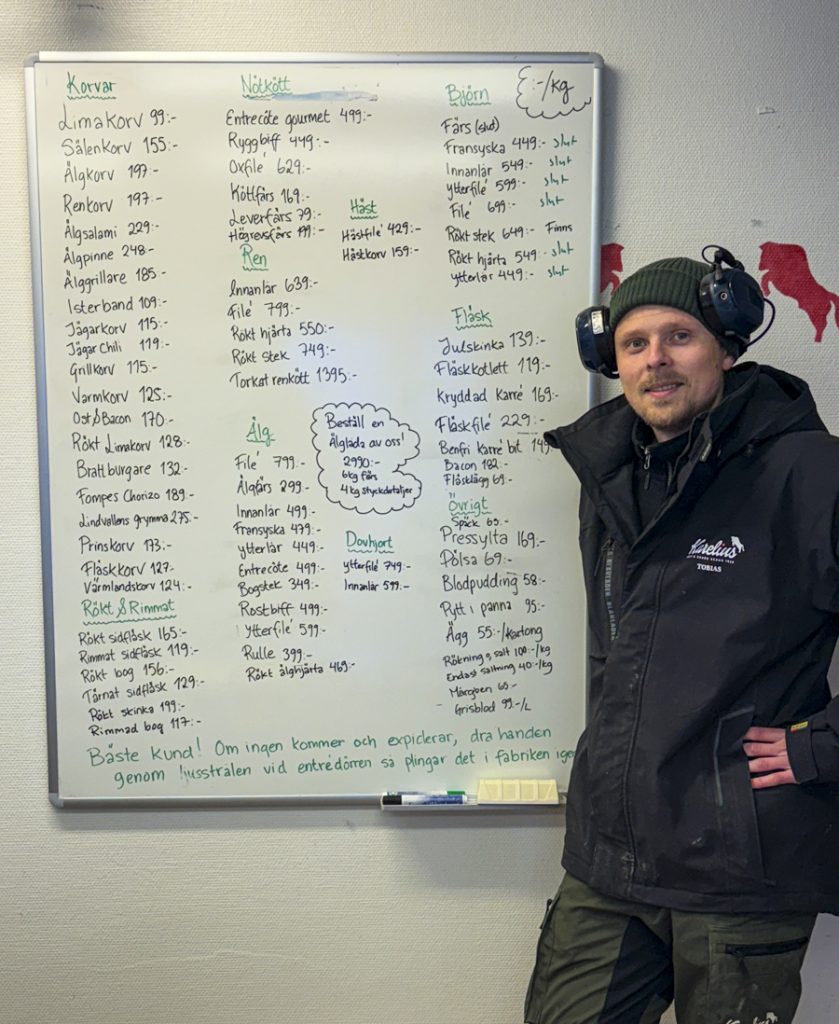 Korvar
Limakorv 99:-
Sälenkorv 155:-
Älgkorv 197:-
Renkorv 197:-
Älgsalami 229:-
Älgpinne 248:-
Älggrillare 185 -
Isterband 109:-
Jägarkorv 115:-
Jägar Chili 119:-
Grillkorv 115:-
Varmkorv 125:-
Ost & Bacon 170:-
Rökt Limakorv 128:-
Brattburgare 132:-
Fompes Chorizo 189:-
Lindvallens grymma 275:-
Prinskorv 173:-
Fläskkorv 127:-
Värmlandskorv 124:-
Rökt & Rimmat
Rökt sidfläsk 165:-
Rimmat sidfläsk 119:-
Rökt bog 156:-
Tärnat sidfläsk 129:-
Rökt skinka 199:-
Rimmad bog 117:-
Nötkött
Entrecôte gourmet 499:-
Ryggbiff 449:-
Oxfilé 629:-
Köttfärs 169:-
Leverfärs 79:-
Högrevsfärs 199:-
Ren
Innanlår 639:-
Filé 799:-
Rökt hjärta 550:-
Rökt stek 749:-
Torkat renkött 1395:-
Älg
Filé 799:-
Älgfärs 299:-
Innanlår 499:-
Fransyska 479:-
ytterlår 449:-
Entrecôte 499:-
Bogstek 349:-
Rostbiff 499:-
Ytterfilé 599:-
Rulle 399:-
Rökt älghjärta 469:-
Häst
Hästfilé 429:-
Hästkorv 159:-
Beställ en
Älglåda av oss!
2990:-
6kg färs
4kg styckdetaljer
Dovhjort
ytterfilé 749:-
Innanlår 599:-
:-/kg
Björn
Färs (slut)
Fransyska 449:- slut
Innanlår 549:- slut
ytterfilé 599:- slut
Filé 699:- slut
Rökt stek 649:- Finns
Rökt hjärta 549:- slut
ytterlår 449:- slut
Fläsk
Julskinka 139:-
Fläskkotlett 119:-
Kryddad Karré 169:-
Fläskfilé 229:-
Benfri karré bit 149
Bacon 182:-
Fläsklägg 69:-
Övrigt
Späck 65:-
Pressylta 169:-
Pölsa 69:-
Blodpudding 58:-
Pytt i panna 95:-
Ägg 55:-/Kartong
Rökning & salt 100:-/kg
Endast saltning 40:-/kg
Märgben 65:-
Grisblod 99:-/L
Bäste kund! Om ingen kommer och expiderar, dra handen
genom ljusstrålen vid entrédörren så plingar det i fabriken igen
Karelius
TOBIAS